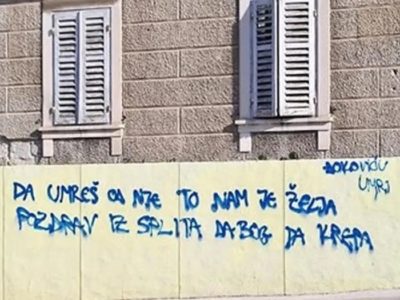 ĐOKOVIĆU
UMRI
DA UMREŠ OD NJE TO NAM JE ŽELJA
POZDRAV IZ SPLITA DABOG DA KREPA